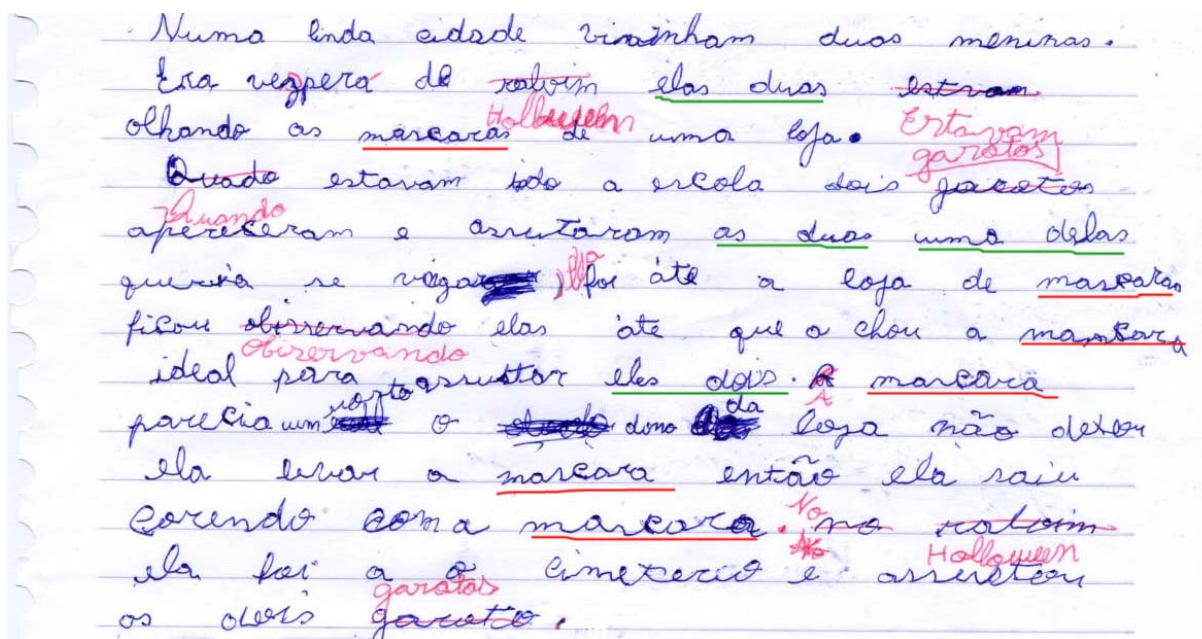 Numa linda cidade vinhinham duas meninas.
Era vezpera de raloim elas duas estavam
Holloueen
olhando as mascaras de uma loja. Estavam
garotos
Quado estavam indo a escola dois garotos
Quando
apereceram e assutaram as duas uma delas
queria se vigar, ela foi até a loja de mascaras
ficou obisservando elas até que a chou a mascara
Obiservando
ideal para assustar eles dois. A mascara
parecia um rosto o dono da loja não dexou
ela levar a mascara então ela saiu
corendo com a mascara. No no raloim
Holloueen
ela foi a o cimeterio e assustou
garotos
os dois garoto.